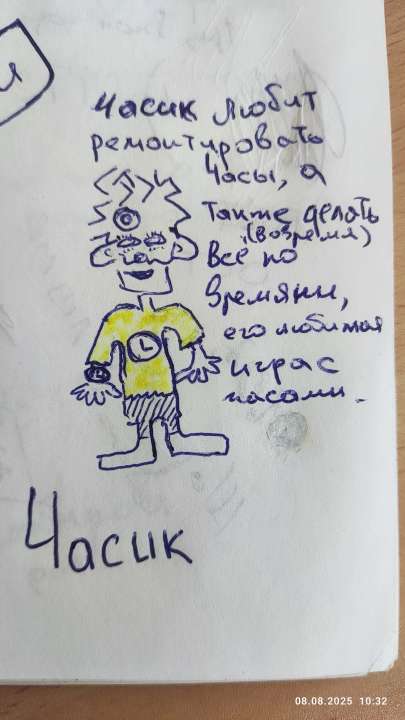 и
Часик любит
ремонтировать
Часы, а
также делать
(вовремя)
Всё по
времяни,
его любимая
игра с
часами.
Часик
08.08.2025 10:32